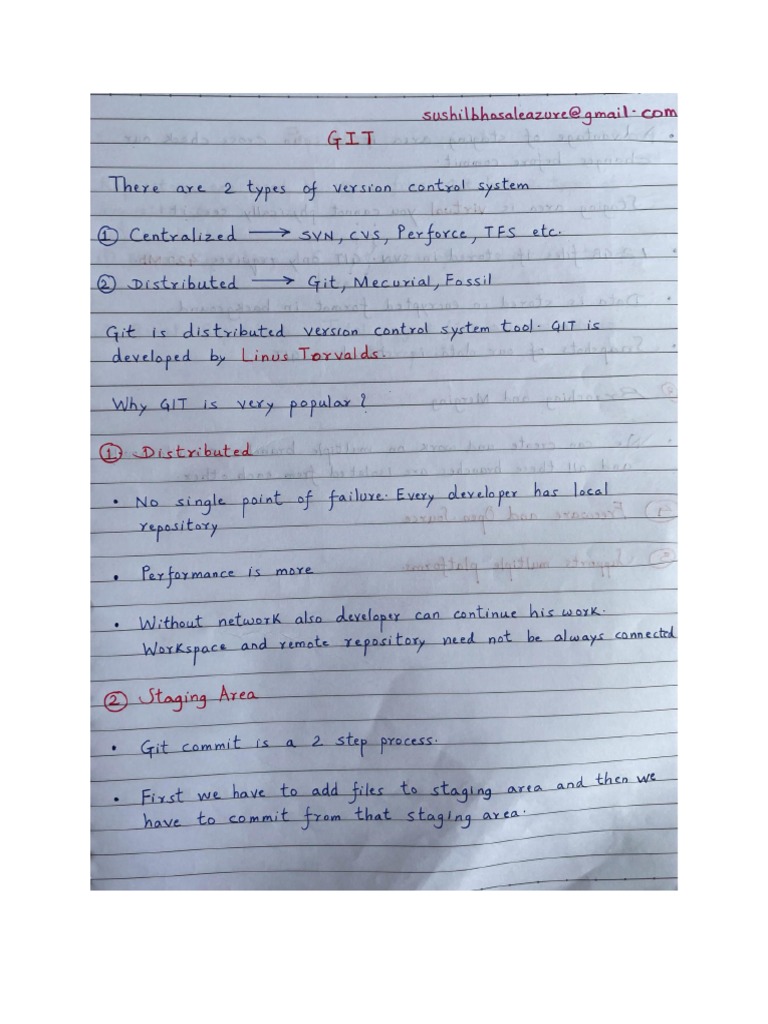 sushilbhosaleazure@gmail.com
GIT
There are 2 types of version control system
① Centralized → SVN, CVS, Perforce, TFS etc.
② Distributed → Git, Mecurial, Fossil
Git is distributed version control system tool. GIT is
developed by Linus Torvalds.
Why GIT is very popular?
① Distributed
• No single point of failure. Every developer has local
repository
• Performance is more
• Without network also developer can continue his work.
Workspace and remote repository need not be always connected
② Staging Area
• Git commit is a 2 step process.
• First we have to add files to staging area and then we
have to commit from that staging area.